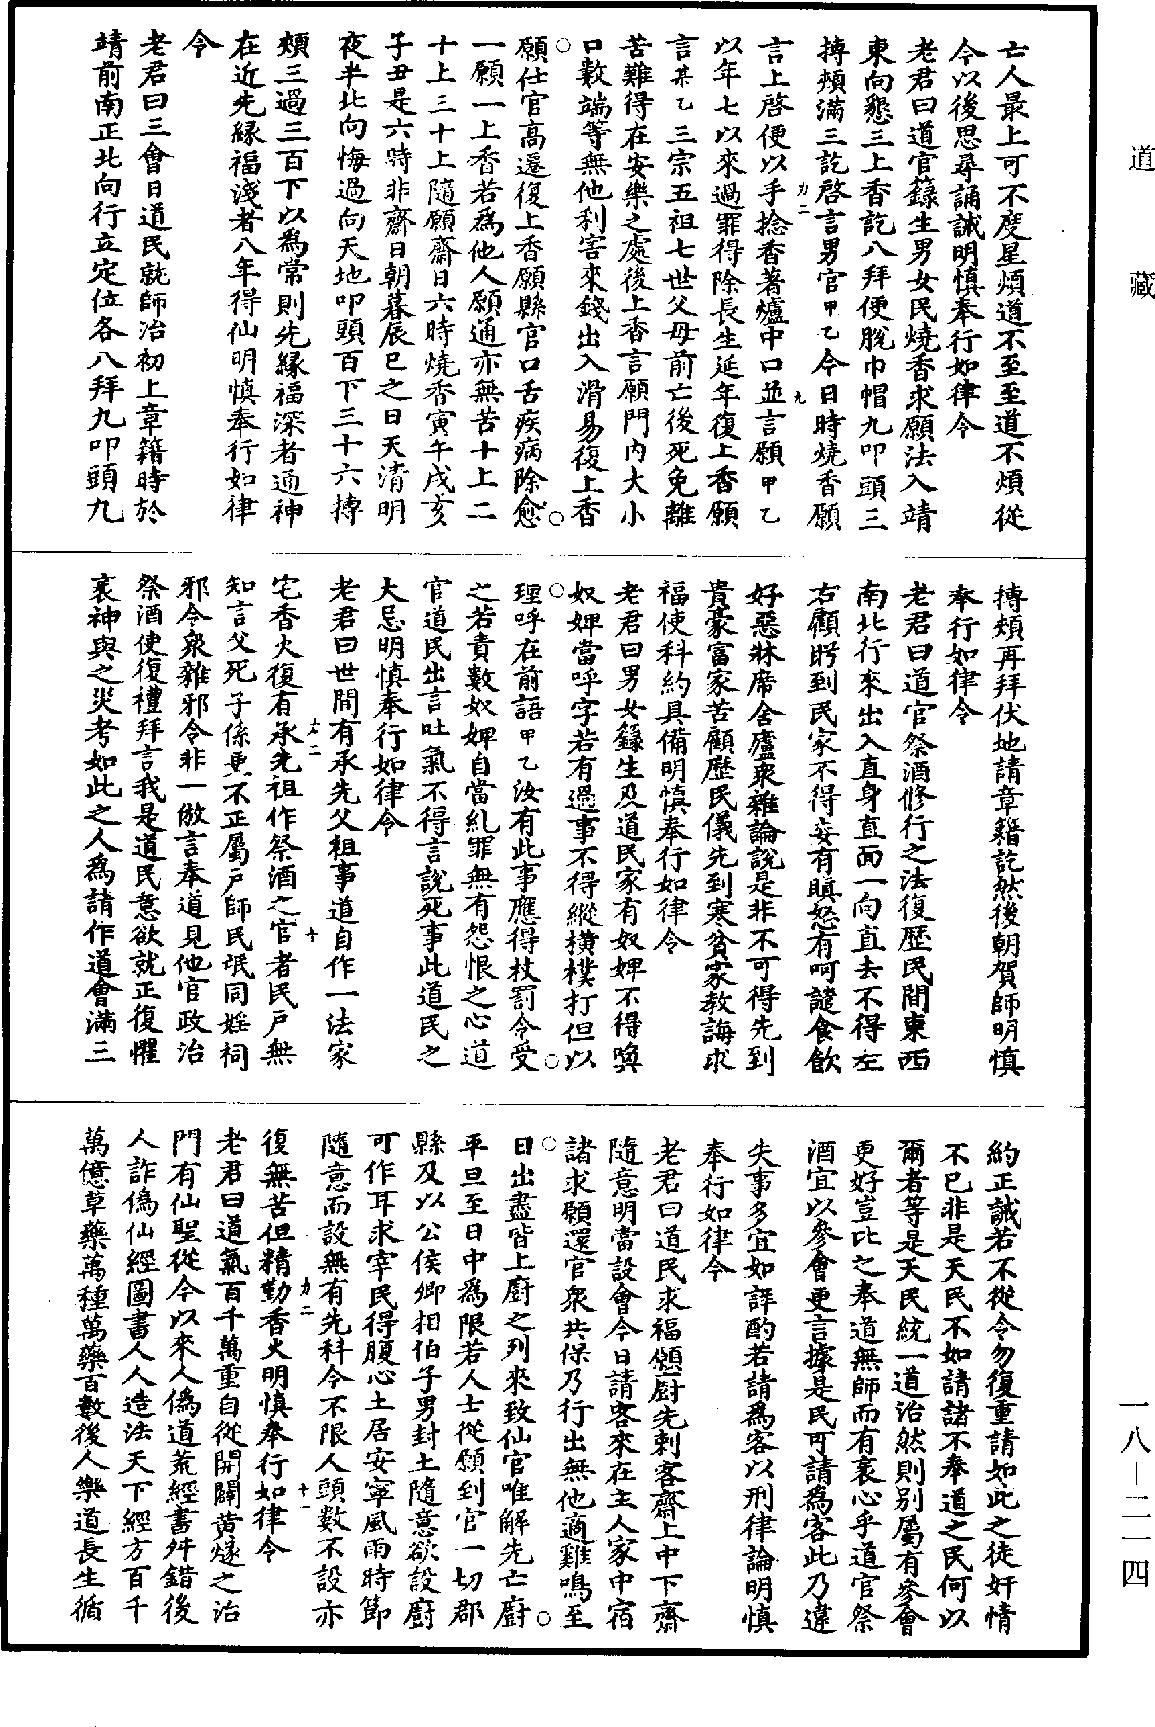 道藏
亡人最上可不度星煩道不至至道不煩從
今以後思尋誦誡明慎奉行如律令
老君曰道官籙生男女民燒香求願法入靖
東向懇三上香訖八拜便脫巾帽九叩頭三
搏頰滿三訖啓言男官甲乙今日時燒香願
言上啓便以手捻香著爐中口並言願甲乙
以年七以來過罪得除長生延年復上香願
言某乙三宗五祖七世父母前亡後死免離
苦難得在安樂之處後上香言願門內大小
口數端等無他利害來錢出入滑易復上香
願仕官高遷復上香願縣官口舌疾病除愈
一願一上香若為他人願通亦無苦十上二
十上三十上隨願齋日六時燒香寅午戌亥
子丑是六時非齋日朝暮辰巳之日天清明
夜半北向悔過向天地叩頭百下三十六搏
頰三過三百下以為常則先緣福深者通神
在近先緣福淺者八年得仙明慎奉行如律
令
老君曰三會日道民就師治初上章籍時於
靖前南正北向行立定位各八拜九叩頭九
搏頰再拜伏地請章籍訖然後朝賀師明慎
奉行如律令
老君曰道官祭酒修行之法復歷民間東西
南北行來出入直身直面一向直去不得左
右顧眄到民家不得妄有瞋怒有呵譴食飲
好惡牀席舍廬衆雜論說是非不可得先到
貴豪富家苦顧歷民儀先到寒貧家教誨求
福使科約具備明慎奉行如律令
老君曰男女籙生及道民家有奴婢不得喚
奴婢當呼字若有過事不得縱橫樸打但以
理呼在前語甲乙汝有此事應得杖罰令受
之若責數奴婢自當糺罪無有怨恨之心道
官道民出言吐氣不得言說死事此道民之
大忌明慎奉行如律令
老君曰世間有承先父祖事道自作一法家
宅香火復有承先祖作祭酒之官者民戶無
知言父死子係更不正屬戶師民氓同婬祠
邪令衆雜邪令非一倣言奉道見他官政治
祭酒使復禮拜言我是道民意欲就正復懼
衰神與之災考如此之人為請作道會滿三
約正誡若不從令勿復重請如此之徒奸情
不已非是天民不如諸諸不奉道之民何以
爾者等是天民統一道治然則別屬有參會
更好豈比之奉道無師而有衰心乎道官祭
酒宜以參會更言據是民可請為客此乃違
失事多宜如詳酌若請為客以刑律論明慎
奉行如律令
老君曰道民求福願厨先刺客齋上中下齋
隨意明當設會今日請客來在主人家中宿
諸求願還官衆共保乃行出無他適雞鳴至
日出盡皆上厨之列來致仙官唯解先亡厨
平旦至日中為限若人士從願到官一切郡
縣及以公侯卿相伯子男封土隨意欲設厨
可作耳求宰民得腹心土居安寧風雨時節
隨意而設無有先科今不限人頭數不設亦
復無苦但精勤香火明慎奉行如律令
老君曰道氣百千萬重自從開闢黃燧之治
門有仙聖從今以來人偽道荒經書舛錯後
人詐偽仙經圖書人人造法天下經方百千
萬億草藥萬種萬藥百數後人樂道長生循
一八—二一四